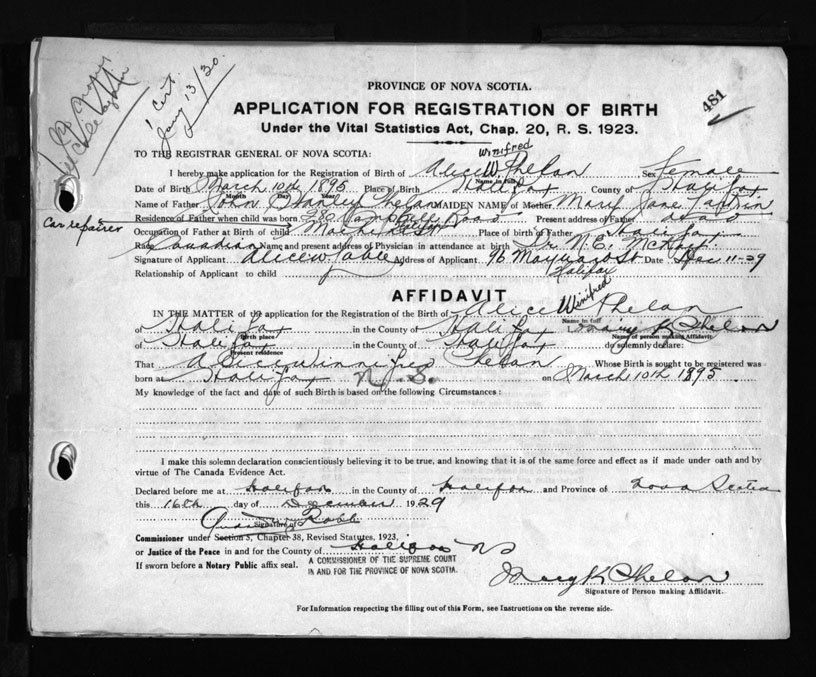 1 cert.
Jany 13/30.
PROVINCE OF NOVA SCOTIA.
481
APPLICATION FOR REGISTRATION OF BIRTH
Under the Vital Statistics Act, Chap. 20, R. S. 1923.
TO THE REGISTRAR GENERAL OF NOVA SCOTIA:
Winifred
I hereby make application for the Registration of Birth of Alice W. Phelan Sex Female
Name in full
Date of Birth March 10th 1895 Place of Birth Halifax County of Halifax
Month Day Year
Name of Father John Stanley Phelan MAIDEN NAME of Mother Mary Jane
Residence of Father when child was born 280 Campbell Road Present address of Father dead
Halifax
car repairer
Occupation of Father at Birth of child Machinist Place of birth of Father Halifax
Race Canadian Name and present address of Physician in attendance at birth Dr. N.E. McKay
Signature of Applicant Alice W Address of Applicant 96 Maynard St Date Dec 11-29
Halifax
Relationship of Applicant to child
AFFIDAVIT
Winifred
IN THE MATTER of an application for the Registration of Birth of Alice Phelan
Name in full
of Halifax in the County of Halifax I Mary K Phelan
Birth place Name of person making Affidavit
of Halifax in the County of Halifax do solemnly declare:
Present residence
That Alice Winnifred Phelan Whose Birth is sought to be registered was
born at Halifax N.S. on March 10th 1895
My knowledge of the fact and date of such Birth is based on the following Circumstances:
I make this solemn declaration conscientiously believing it to be true, and knowing that it is of the same force and effect as if made under oath and by
virtue of The Canada Evidence Act.
Declared before me at Halifax in the County of Halifax and Province of Nova Scotia
this 16th day of December 1929
Robb
Signature of
Commissioner under Section 5, Chapter 38, Revised Statutes, 1923,
or Justice of the Peace in and for the County of Halifax NS
If sworn before a Notary Public affix seal.
A COMMISSIONER OF THE SUPREME COURT
IN AND FOR THE PROVINCE OF NOVA SCOTIA.
Mary K Phelan
Signature of Person making Affidavit.
For Information respecting the filling out of this Form, see Instructions on the reverse side.